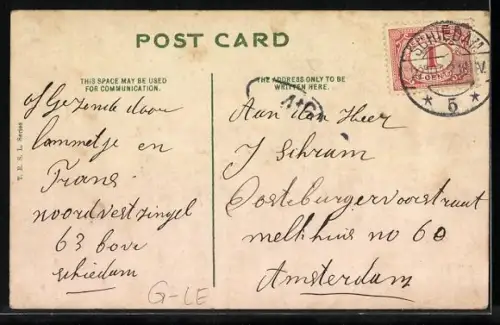 POST CARD
THIS SPACE MAY BE USED
FOR COMMUNICATION.
THE ADDRESS ONLY TO BE
WRITTEN HERE.
T. E. & L. Series
of Gezende door
lammetje en
Frans
noordvestzingel
63 bove
schiedam
G-LE
Aan den Heer
J Schram
Oosteburgervoorstraat
melkhuis no 60
Amsterdam
SCHIEDAM
* 5 *
1